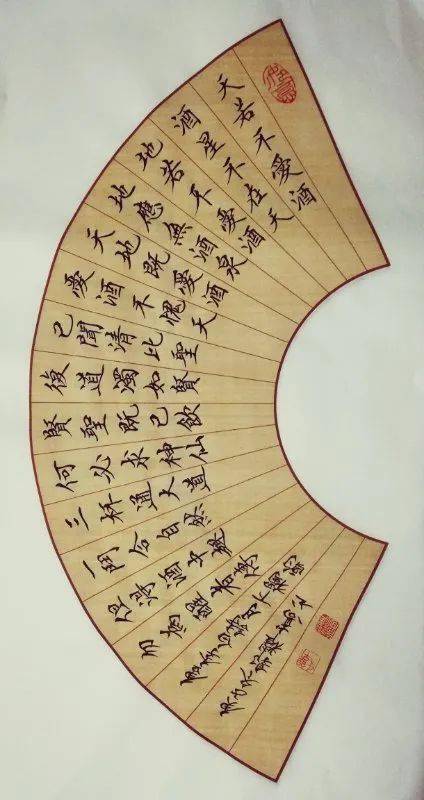 天若不愛酒
酒星不在天
地若不愛酒
地應無酒泉
天地既愛酒
愛酒不愧天
已聞清比聖
復道濁如賢
賢聖既已飲
何必求神仙
三杯通大道
一鬥合自然
但得酒中趣
勿為醒者傳